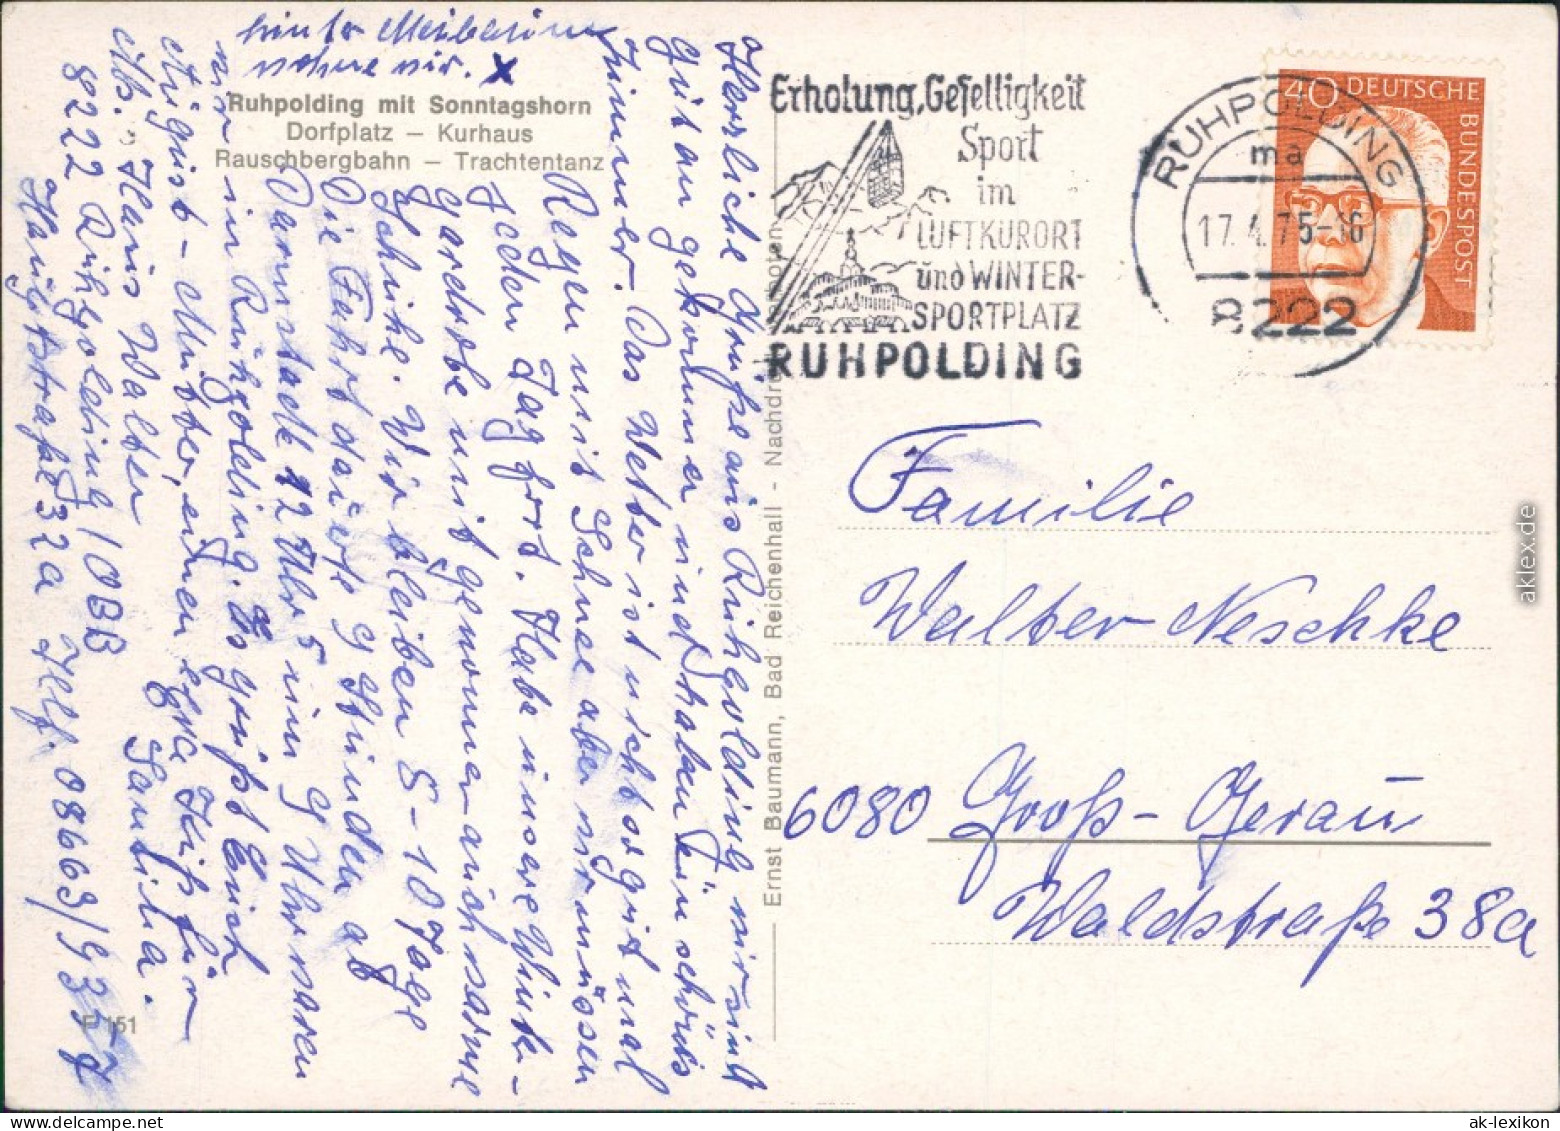 hinter
nehme wir. X
Ruhpolding mit Sonntagshorn
Dorfplatz – Kurhaus
Rauschbergbahn – Trachtentanz
Herzliche Grüße aus Ruhpolding wir sind
gut angekommen und haben ein schönes
Zimmer. Das Wetter ist nicht so gut mal
Regen mit Schnee aber wir müssen
jeden Tag fort. Habe unsere Winter-
gardrobe mit genommen auch warme
Schuhe. Wir bleiben 8–10 Tage
Die Fahrt dauerte 9 Stunden ab
Darmstadt 12 Uhr 5 um 9 Uhr waren
wir in Ruhpolding. Es grüßt Euch
August – Mutter, einen Kuß für
Sandra.
Ab. Hans Walter
8222 Ruhpolding / OBB
Hauptstraße 32a Telf. 08663/9357
F 151
Ernst Baumann, Bad Reichenhall - Nachdruck verboten
Erholung, Geselligkeit
Sport
im
LUFTKURORT
und WINTER-
SPORTPLATZ
RUHPOLDING
RUHPOLDING
ma
17.4.75-16
8222
40 DEUTSCHE
BUNDESPOST
Familie
Walter Neschke
6080 Groß-Gerau
Waldstraße 38a
aklex.de
ak-lexikon